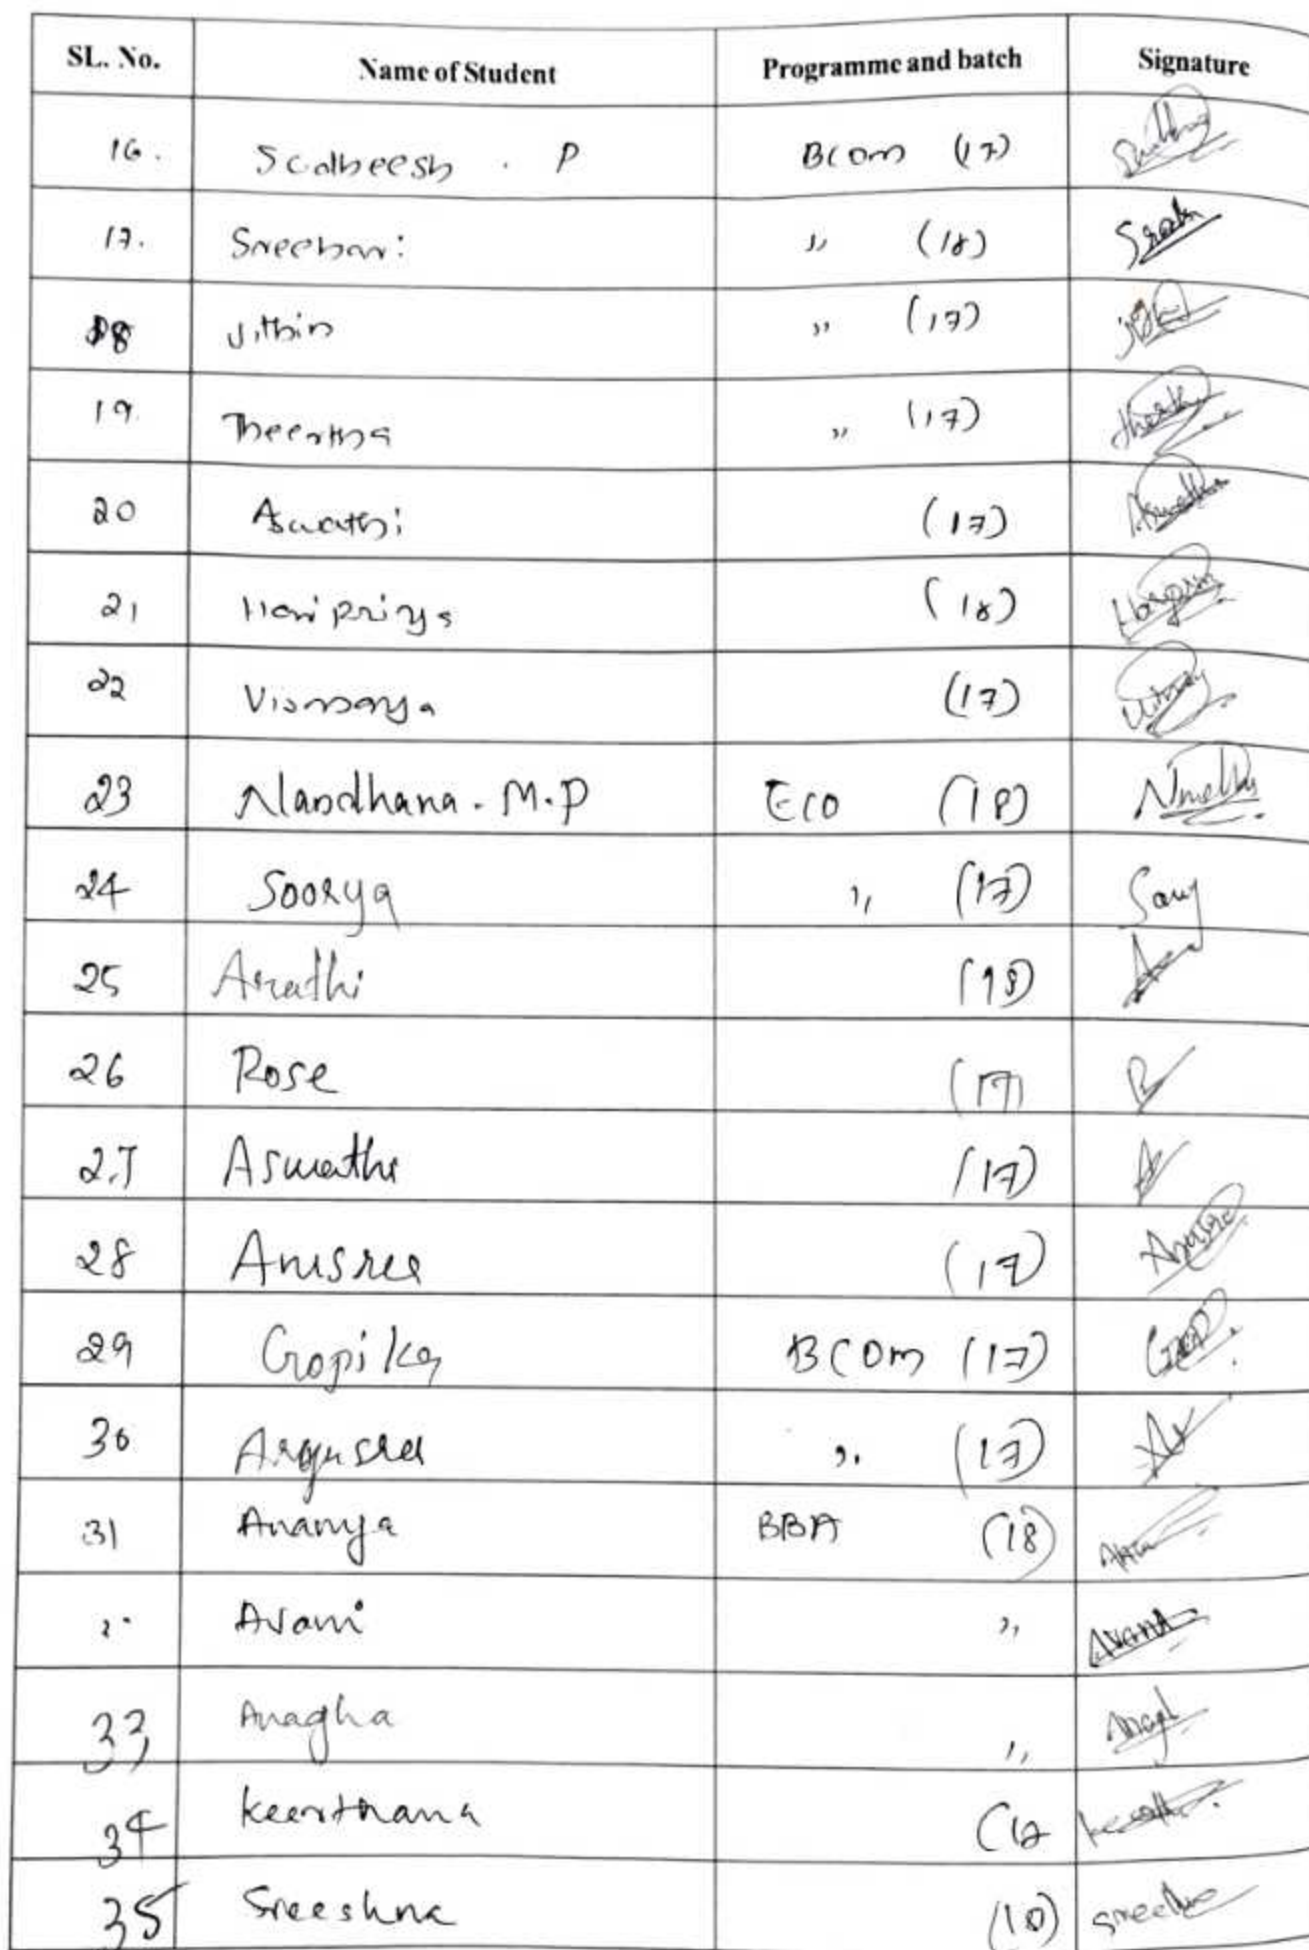 SL. No. Name of Student Programme and batch Signature
16. Sudheesh . P BCOM (17)
17. Sreehari ,, (18) Sreeh
18 Jithin ,, (17)
19. Theertha ,, (17)
20 Aswathi (17)
21 Haripriya (18)
22 Vismaya (17)
23 Nandhana . M.P Eco (18)
24 Soorya ,, (17)
25 Arathi (18)
26 Rose (17) R
27 Aswathi (17) A
28 Anusree (17) Anusree
29 Gopika BCOM (17)
30 Argusree ,, (17)
31 Ananya BBA (18)
Avani ,,
33 Anagha ,,
34 Keerthana (17
35 Sreeshna (18)